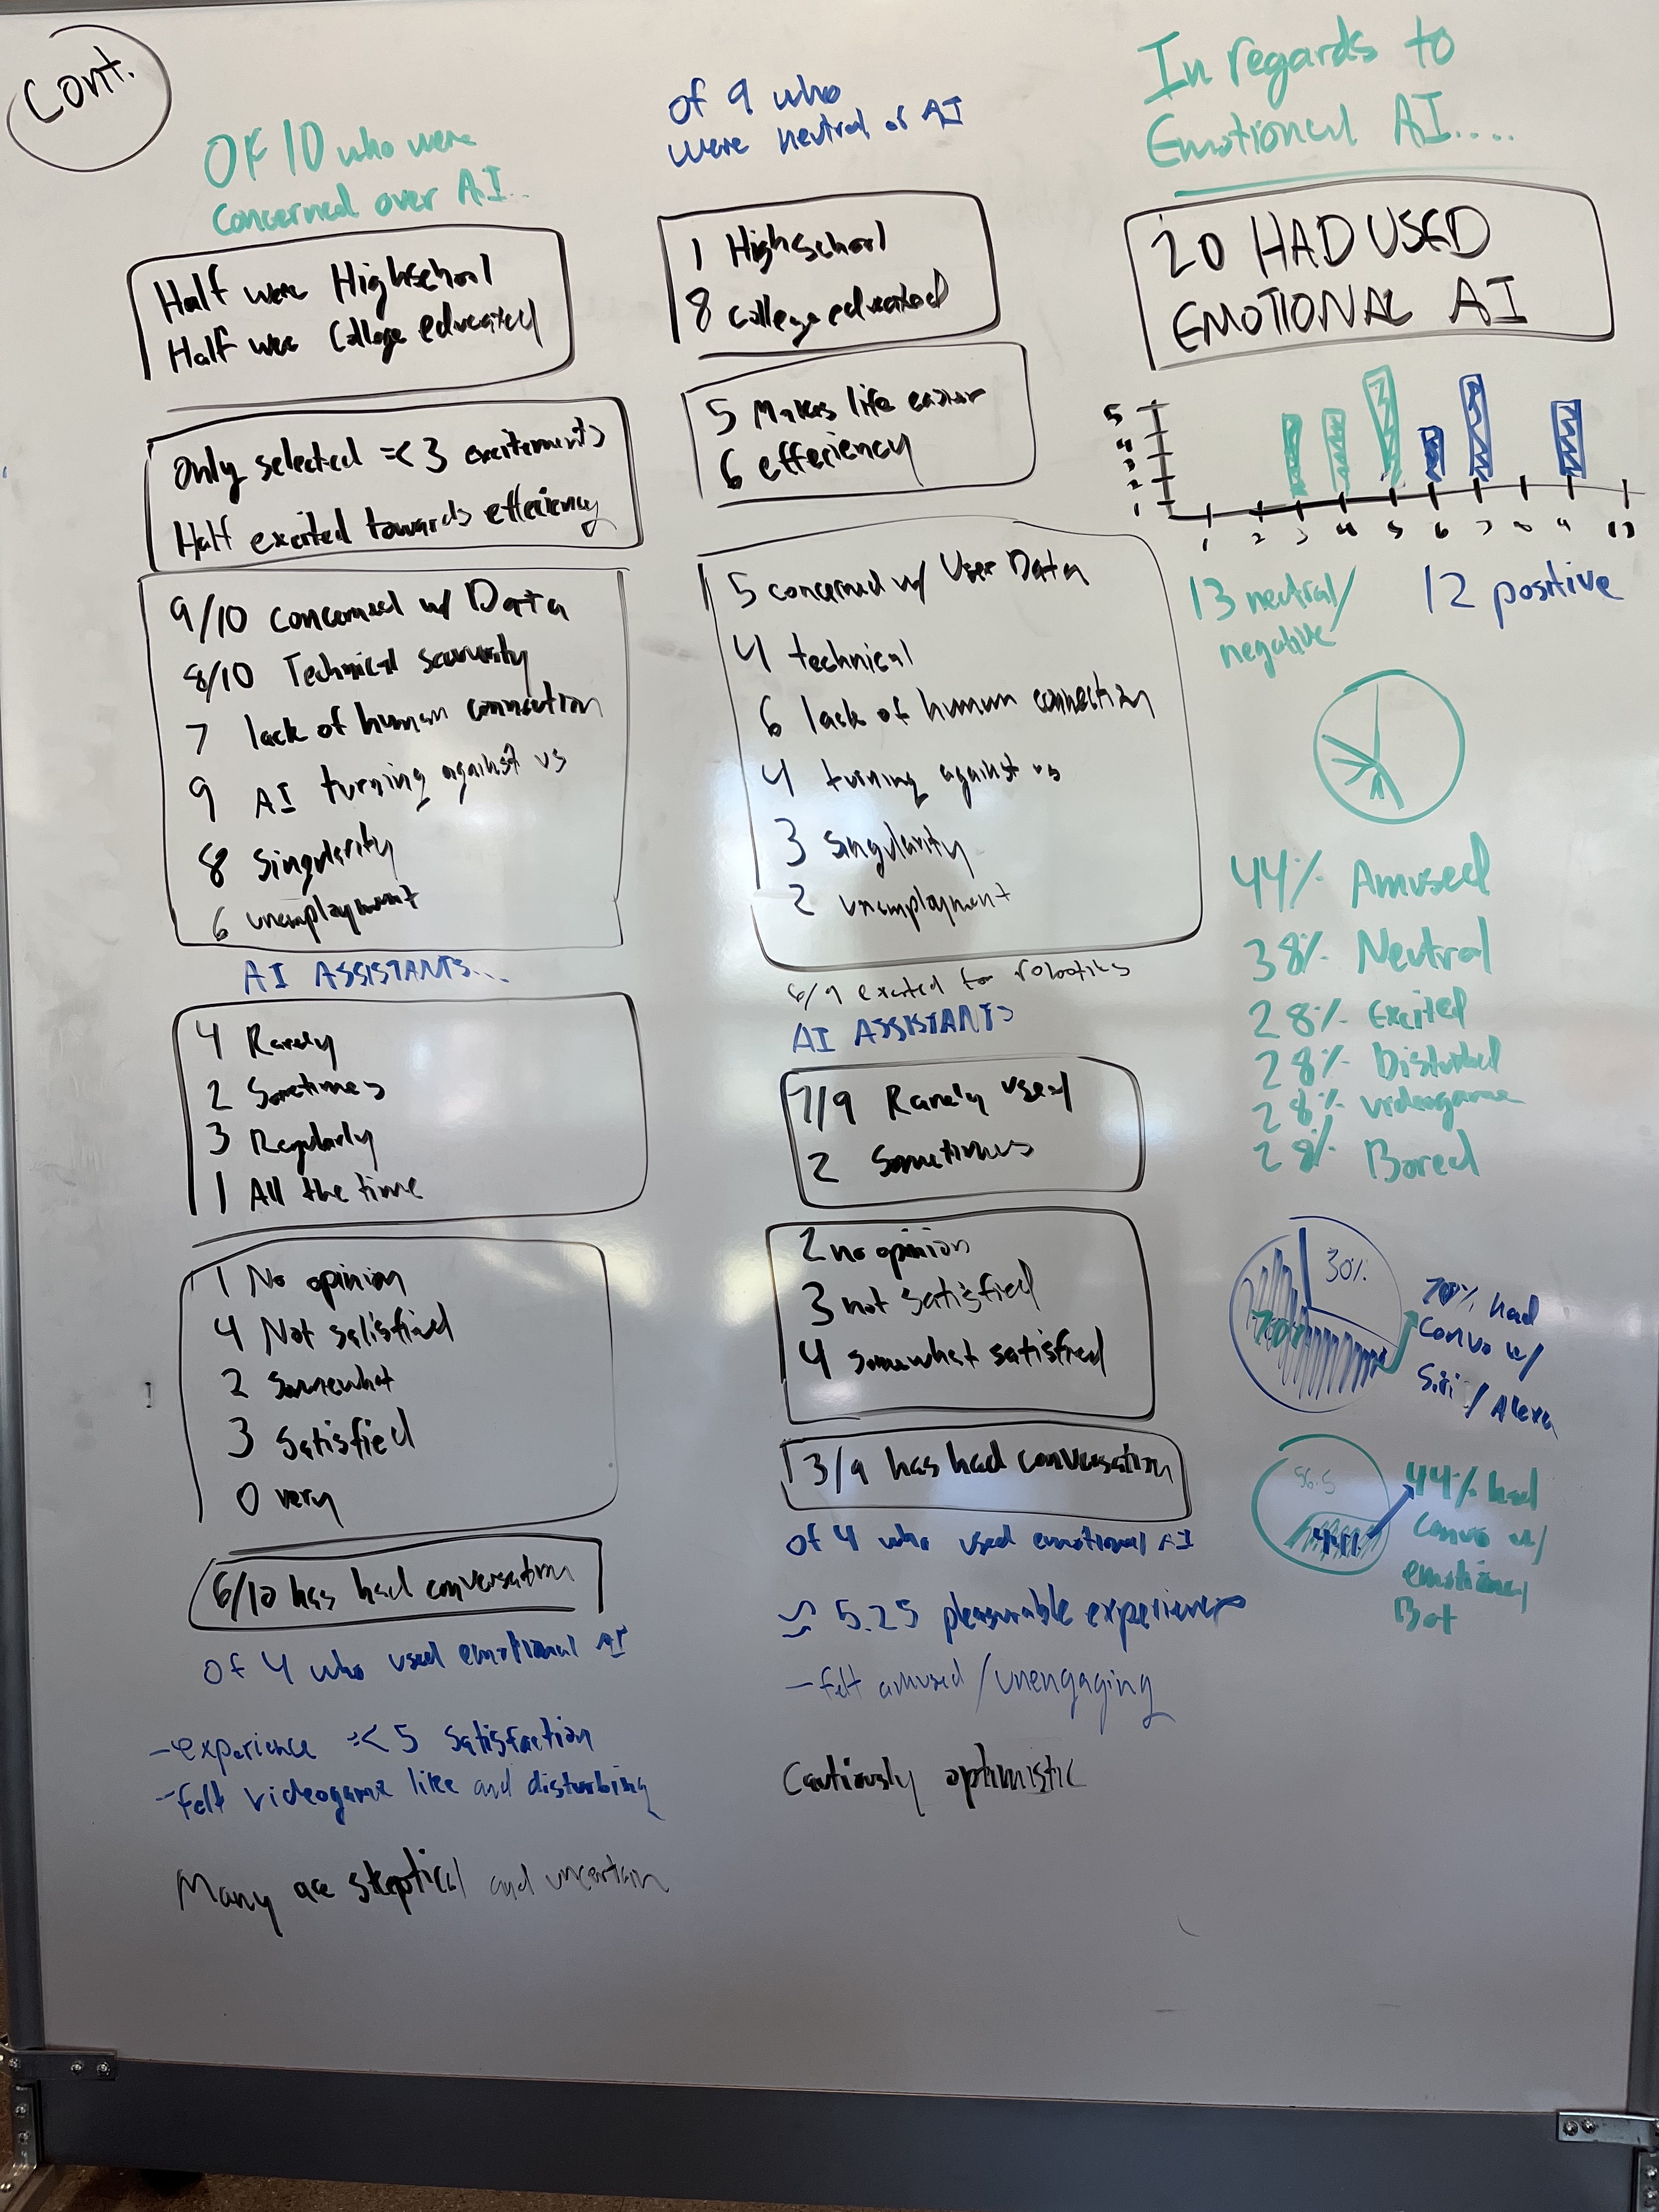 Cont.
OF 10 who were
concerned over AI...
Half were Highschool
Half were College educated
Only selected =< 3 excitements
Half excited towards efficiency
9/10 concerned w/ Data
8/10 Technical security
7 lack of human connection
9 AI turning against us
8 Singularity
6 unemployment
AI ASSISTANTS...
4 Rarely
2 Sometimes
3 Regularly
1 All the time
1 No opinion
4 Not satisfied
2 Somewhat
3 Satisfied
0 very
6/10 has had conversation
Of 4 who used emotional AI
- experience =< 5 satisfaction
- felt videogame like and disturbing
Many are skeptical and uncertain
Of 9 who
were neutral of AI
1 Highschool
8 college educated
5 Makes life easier
6 efficiency
5 concerned w/ User Data
4 technical
6 lack of human connection
4 turning against us
3 singularity
2 unemployment
6/9 excited for robotics
AI ASSISTANTS
7/9 Rarely used
2 Sometimes
2 no opinion
3 not satisfied
4 somewhat satisfied
3/9 has had conversation
Of 4 who used emotional AI
≈ 5.25 pleasurable experience
- felt amused/unengaging
Cautiously optimistic
In regards to
Emotional AI....
20 HAD USED
EMOTIONAL AI
5
4
3
2
1
1 2 3 4 5 6 7 8 9 10
13 neutral/
negative
12 positive
44% Amused
38% Neutral
28% Excited
28% Disturbed
28% videogame
28% Bored
30%
70%
70% had
convo w/
Siri/Alexa
56.5
44%
44% had
convo w/
emotional
Bot